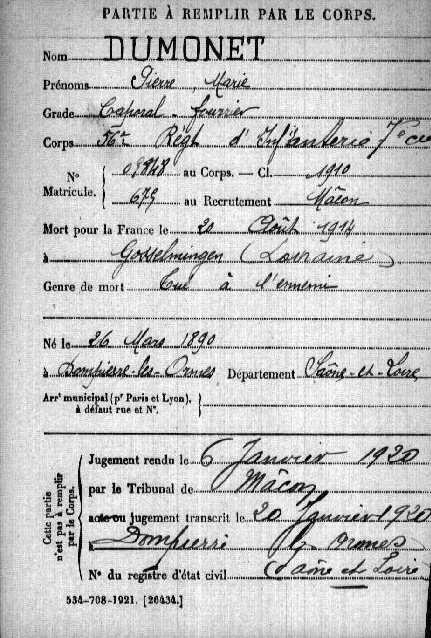 PARTIE À REMPLIR PAR LE CORPS.
Nom DUMONET
Prénoms Pierre Marie
Grade Caporal-fourrier
Corps 56e Régt d'Infanterie 7e cie
N° Matricule. 09848 au Corps. — Cl. 1910
675 au Recrutement Mâcon
Mort pour la France le 20 Août 1914
à Gosselmingen (Lorraine)
Genre de mort Tué à l'ennemi
Né le 26 Mars 1890
à Dompierre-les-Ormes Département Saône-et-Loire
Arrt municipal (pr Paris et Lyon), à défaut rue et N°.
Cette partie n'est pas à remplir par le Corps.
Jugement rendu le 6 Janvier 1920
par le Tribunal de Mâcon
acte ou jugement transcrit le 20 Janvier 1920
à Dompierre les Ormes
(Saône et Loire)
N° du registre d'état civil
534-708-1921. [26434.]